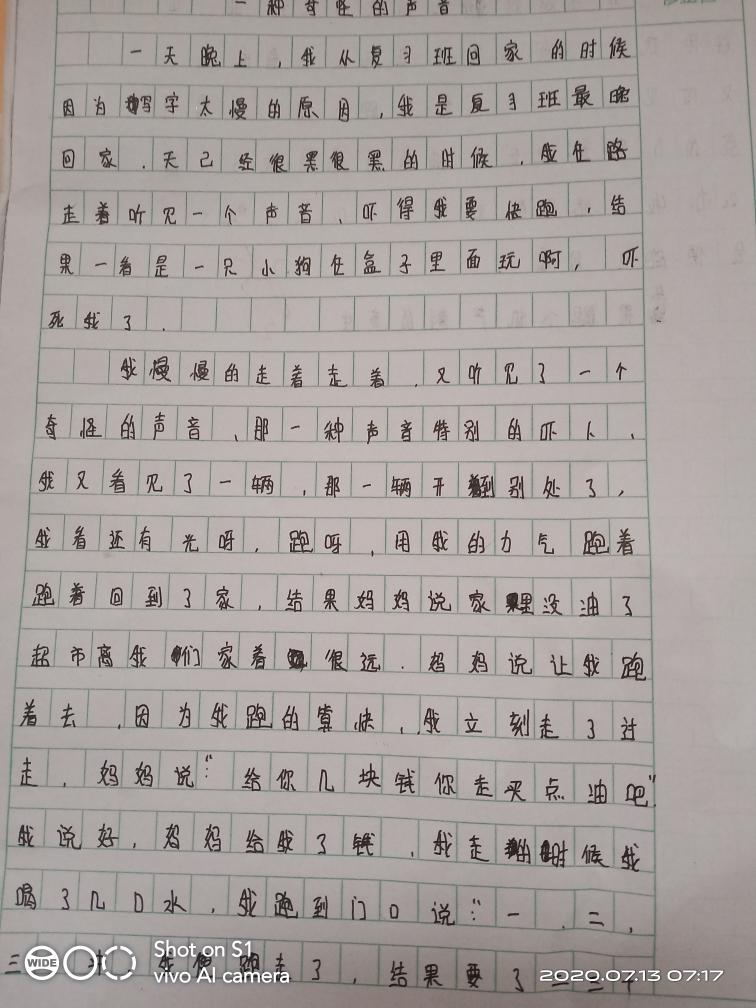 一种奇怪的声音
一天晚上，我从复习班回家的时候
因为写字太慢的原因，我是复习班最晚
回家.天己经很黑很黑的时候，我在路
走着听见一个声音、吓得我要快跑，结
果一看是一只小狗在盒子里面玩啊，吓
死我了.
我慢慢的走着走着.又听见了一个
奇怪的声音、那一种声音特别的吓人、
我又看见了一辆，那一辆开到别处了，
我看还有光呀，跑呀，用我的力气跑着
跑着回到了家，结果妈妈说家里没油了
超市离我们家着很远.妈妈说让我跑
着去，因为我跑的算快，我立刻走了过
走，妈妈说："给你几块钱你走买点油吧"
我说好，妈妈给我了钱，我走的时候我
喝了几口水，我跑到门口说："一.二，
三 跑走了，结果要了一二个
Shot on S1
vivo AI camera
WIDE
2020.07.13 07:17